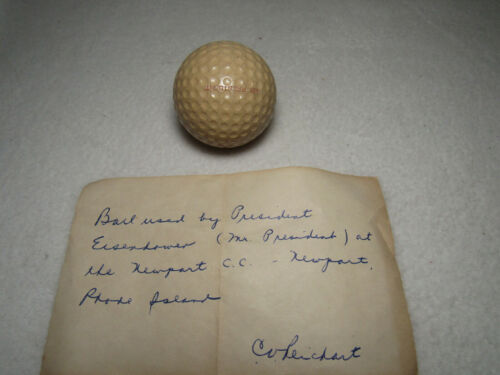 Ball used by President
Eisendower (Mr. President) at
the Newport C.C. - Newport,
Rhode Island